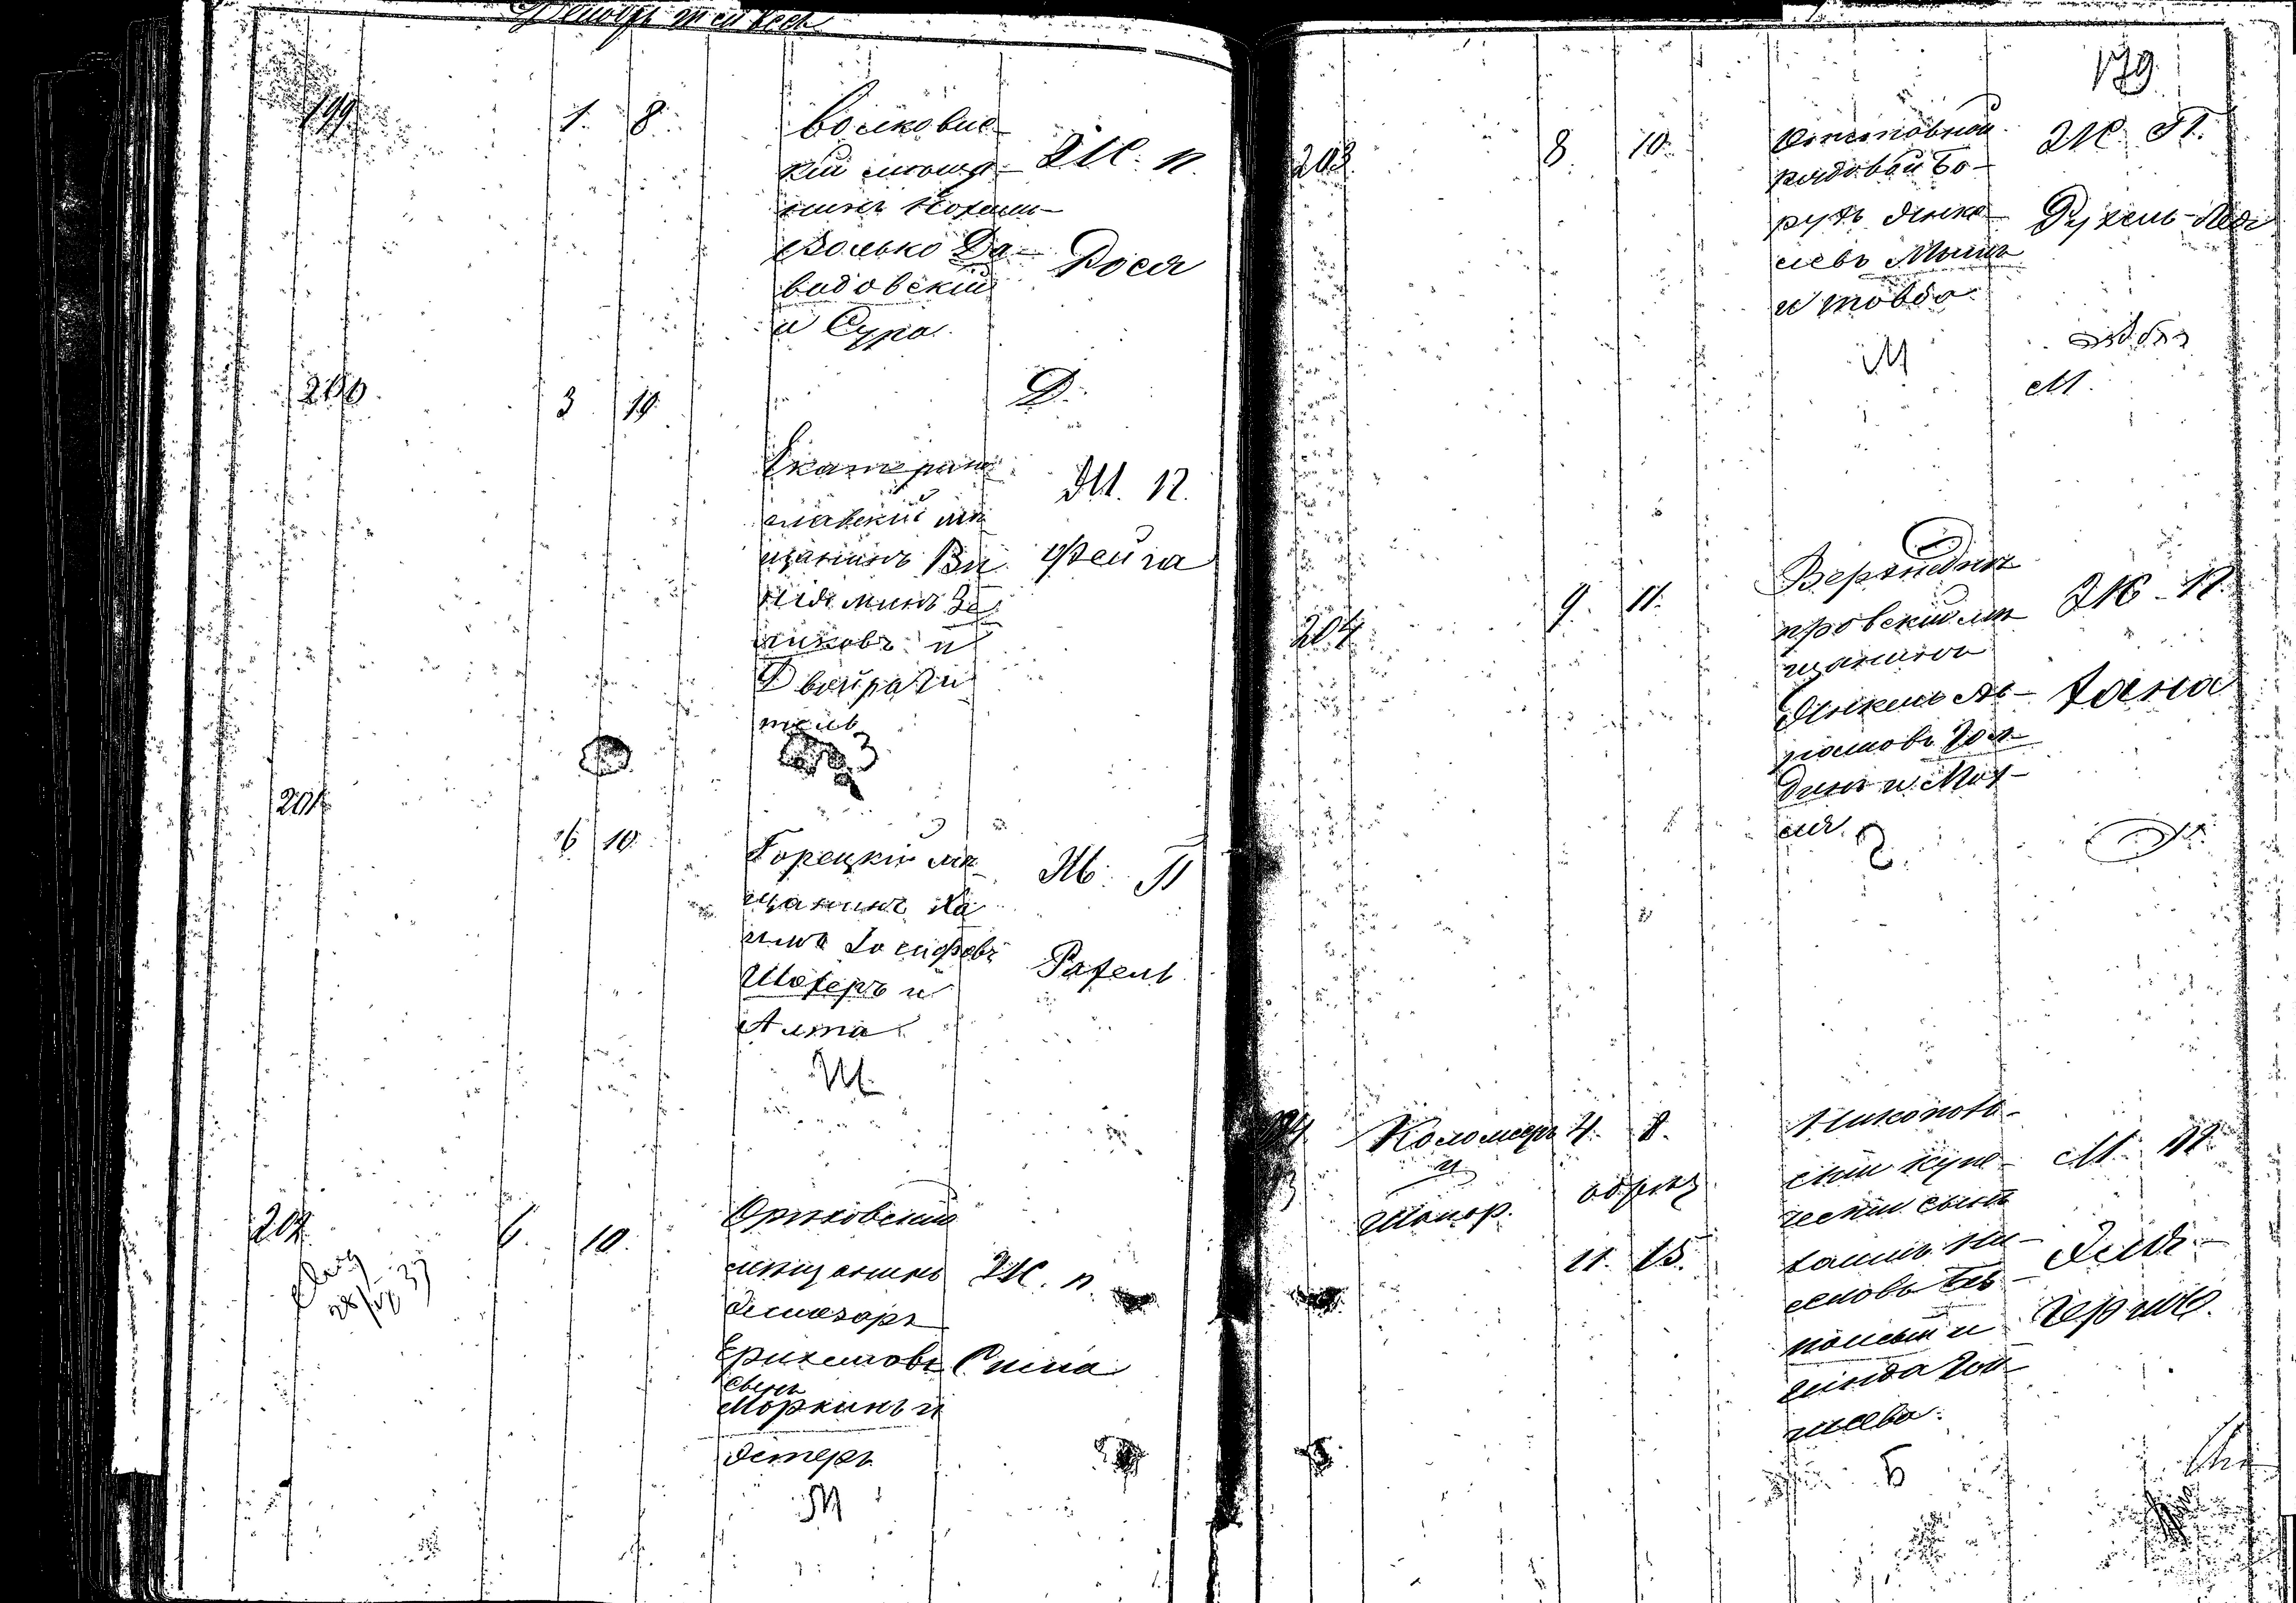 199
1. 8.
Волковис-
кій мѣща-
нинъ Нохимъ-
Волько Да-
видовскій
и Сура.
Ж. п.
Рося
Д.
200
3 10
Екатерино-
славскій мѣ
щанинъ Ви
ніаминъ Зе
ликовъ и
Двейра Ги
тель
З
Ж. п.
Фейга
201
6 10
Горецкій мѣ-
щанинъ Ха
имъ Іосифовъ
Шохеръ и
Алта
Ш
Ж. П
Рахель
202
6. 10.
Орѣховскій
мѣщанинъ
сынъ
Моркинъ и
Эстеръ
М
Ж. п.
179
203
8. 10.
Отставной
рядовой Бо-
рухъ Янке-
левъ Мышъ
и Товба
М
Ж. П.
Рухель-Лея
М.
204
9. 11.
Верхнеднѣ-
провскій мѣ
щанинъ
Янкель Аб-
рамовъ Гол-
динъ и Мих-
ля.
Г
Ж. п.
Хана
Коломеръ
и
Шапор.
4. 8.
обрѣз
11. 15.
Никополь-
скій купе-
ческій сынъ
Б
М. п.
Гершъ.